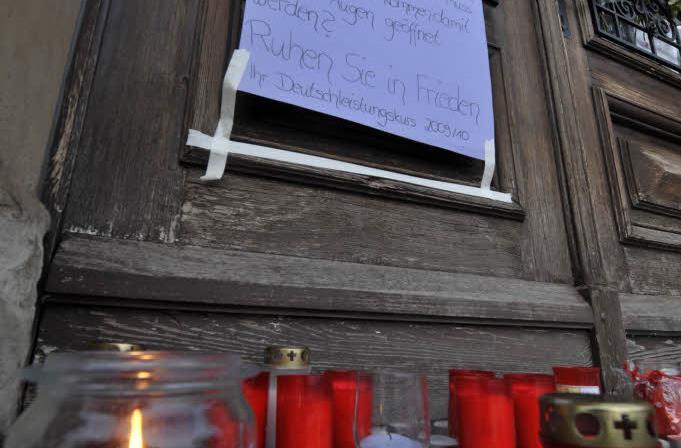 muss
kommen, damit
Augen geöffnet
werden?
Ruhen Sie in Frieden
Ihr Deutschleistungskurs 2009/10